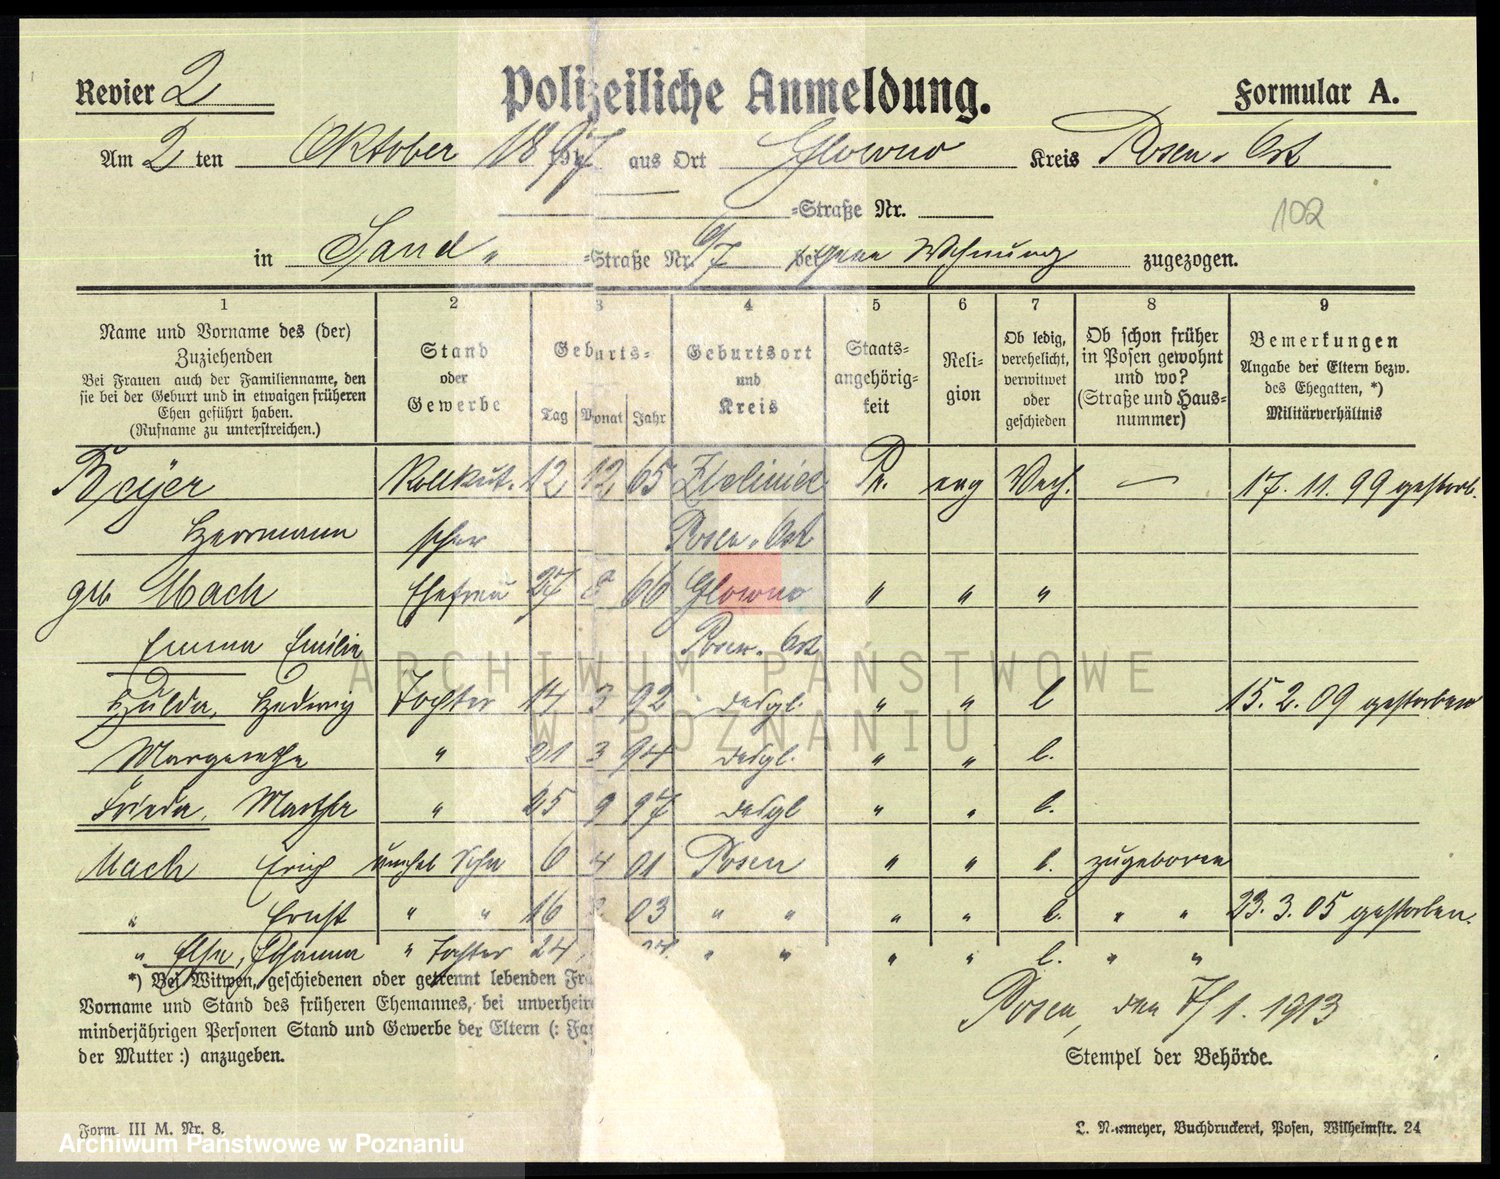 Revier 2
Polizeiliche Anmeldung.
Formular A.
Am 2 ten Oktober 1897 aus Ort Glowno Kreis Posen-Ost
-Straße Nr.
102
in Sand- -Straße Nr. 6/7 eigene Wohnung zugezogen.
1 2 3 4 5 6 7 8 9
Name und Vorname des (der)
Zuziehenden
Bei Frauen auch der Familienname, den
sie bei der Geburt und in etwaigen früheren
Ehen geführt haben.
(Rufname zu unterstreichen.)
Stand
oder
Gewerbe
Geburts-
Tag Monat Jahr
Geburtsort
und
Kreis
Staats-
angehörig-
keit
Reli-
gion
Ob ledig,
verehelicht,
verwitwet
oder
geschieden
Ob schon früher
in Posen gewohnt
und wo?
(Straße und Haus-
nummer)
Bemerkungen
Angabe der Eltern bezw.
des Ehegatten, *)
Militärverhältnis
Beyer Rollkut- 12 12 65 Pr. evg Verh. — 17.11.99 gestorb.
Herrmann scher Posen-Ost
geb Mach Ehefrau 27 66 Glowno " " "
Emma Emilie Posen-Ost
Hulda, Hedwig Tochter 14 3 92 desgl. " " l 15.2.09 gestorben
Margarethe " 21 3 94 desgl. " " l.
Frieda, Martha " 25 9 97 desgl " " l.
Mach Erich unehel Sohn 6 4 01 Posen " " l. zugeboren
" Ernst " " 16 03 " " " " l. " " 23.3.05 gestorben.
" Else, Johanna " Tochter 24 " " " " l. " "
*) Bei Witwen, geschiedenen oder getrennt lebenden Fra
Vorname und Stand des früheren Ehemannes, bei unverheir
minderjährigen Personen Stand und Gewerbe der Eltern (: Fa
der Mutter :) anzugeben.
Posen, den 7/1. 1913
Stempel der Behörde.
Form III M. Nr. 8.
Buchdruckerei, Posen, Wilhelmstr. 24
ARCHIWUM PAŃSTWOWE
W POZNANIU
Archiwum Państwowe w Poznaniu